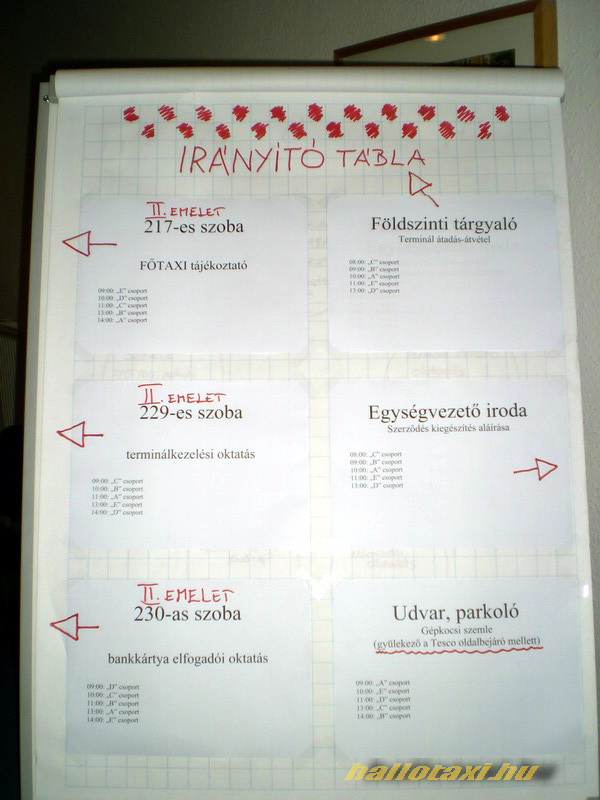 IRÁNYÍTÓ TÁBLA
II. EMELET
217-es szoba
FŐTAXI tájékoztató
09:00: „E” csoport
10:00: „D” csoport
11:00: „C” csoport
13:00: „B” csoport
14:00: „A” csoport
Földszinti tárgyaló
Terminál átadás-átvétel
08:00: „C” csoport
09:00: „B” csoport
10:00: „A” csoport
11:00: „E” csoport
13:00: „D” csoport
II. EMELET
229-es szoba
terminálkezelési oktatás
09:00: „C” csoport
10:00: „B” csoport
11:00: „A” csoport
13:00: „E” csoport
14:00: „D” csoport
Egységvezető iroda
Szerződés kiegészítés aláírása
08:00: „C” csoport
09:00: „B” csoport
10:00: „A” csoport
11:00: „E” csoport
13:00: „D” csoport
II. EMELET
230-as szoba
bankkártya elfogadói oktatás
09:00: „D” csoport
10:00: „C” csoport
11:00: „B” csoport
13:00: „A” csoport
14:00: „E” csoport
Udvar, parkoló
Gépkocsi szemle
(gyülekező a Tesco oldalbejáró mellett)
09:00: „A” csoport
10:00: „E” csoport
11:00: „D” csoport
13:00: „C” csoport
14:00: „B” csoport
hallotaxi.hu